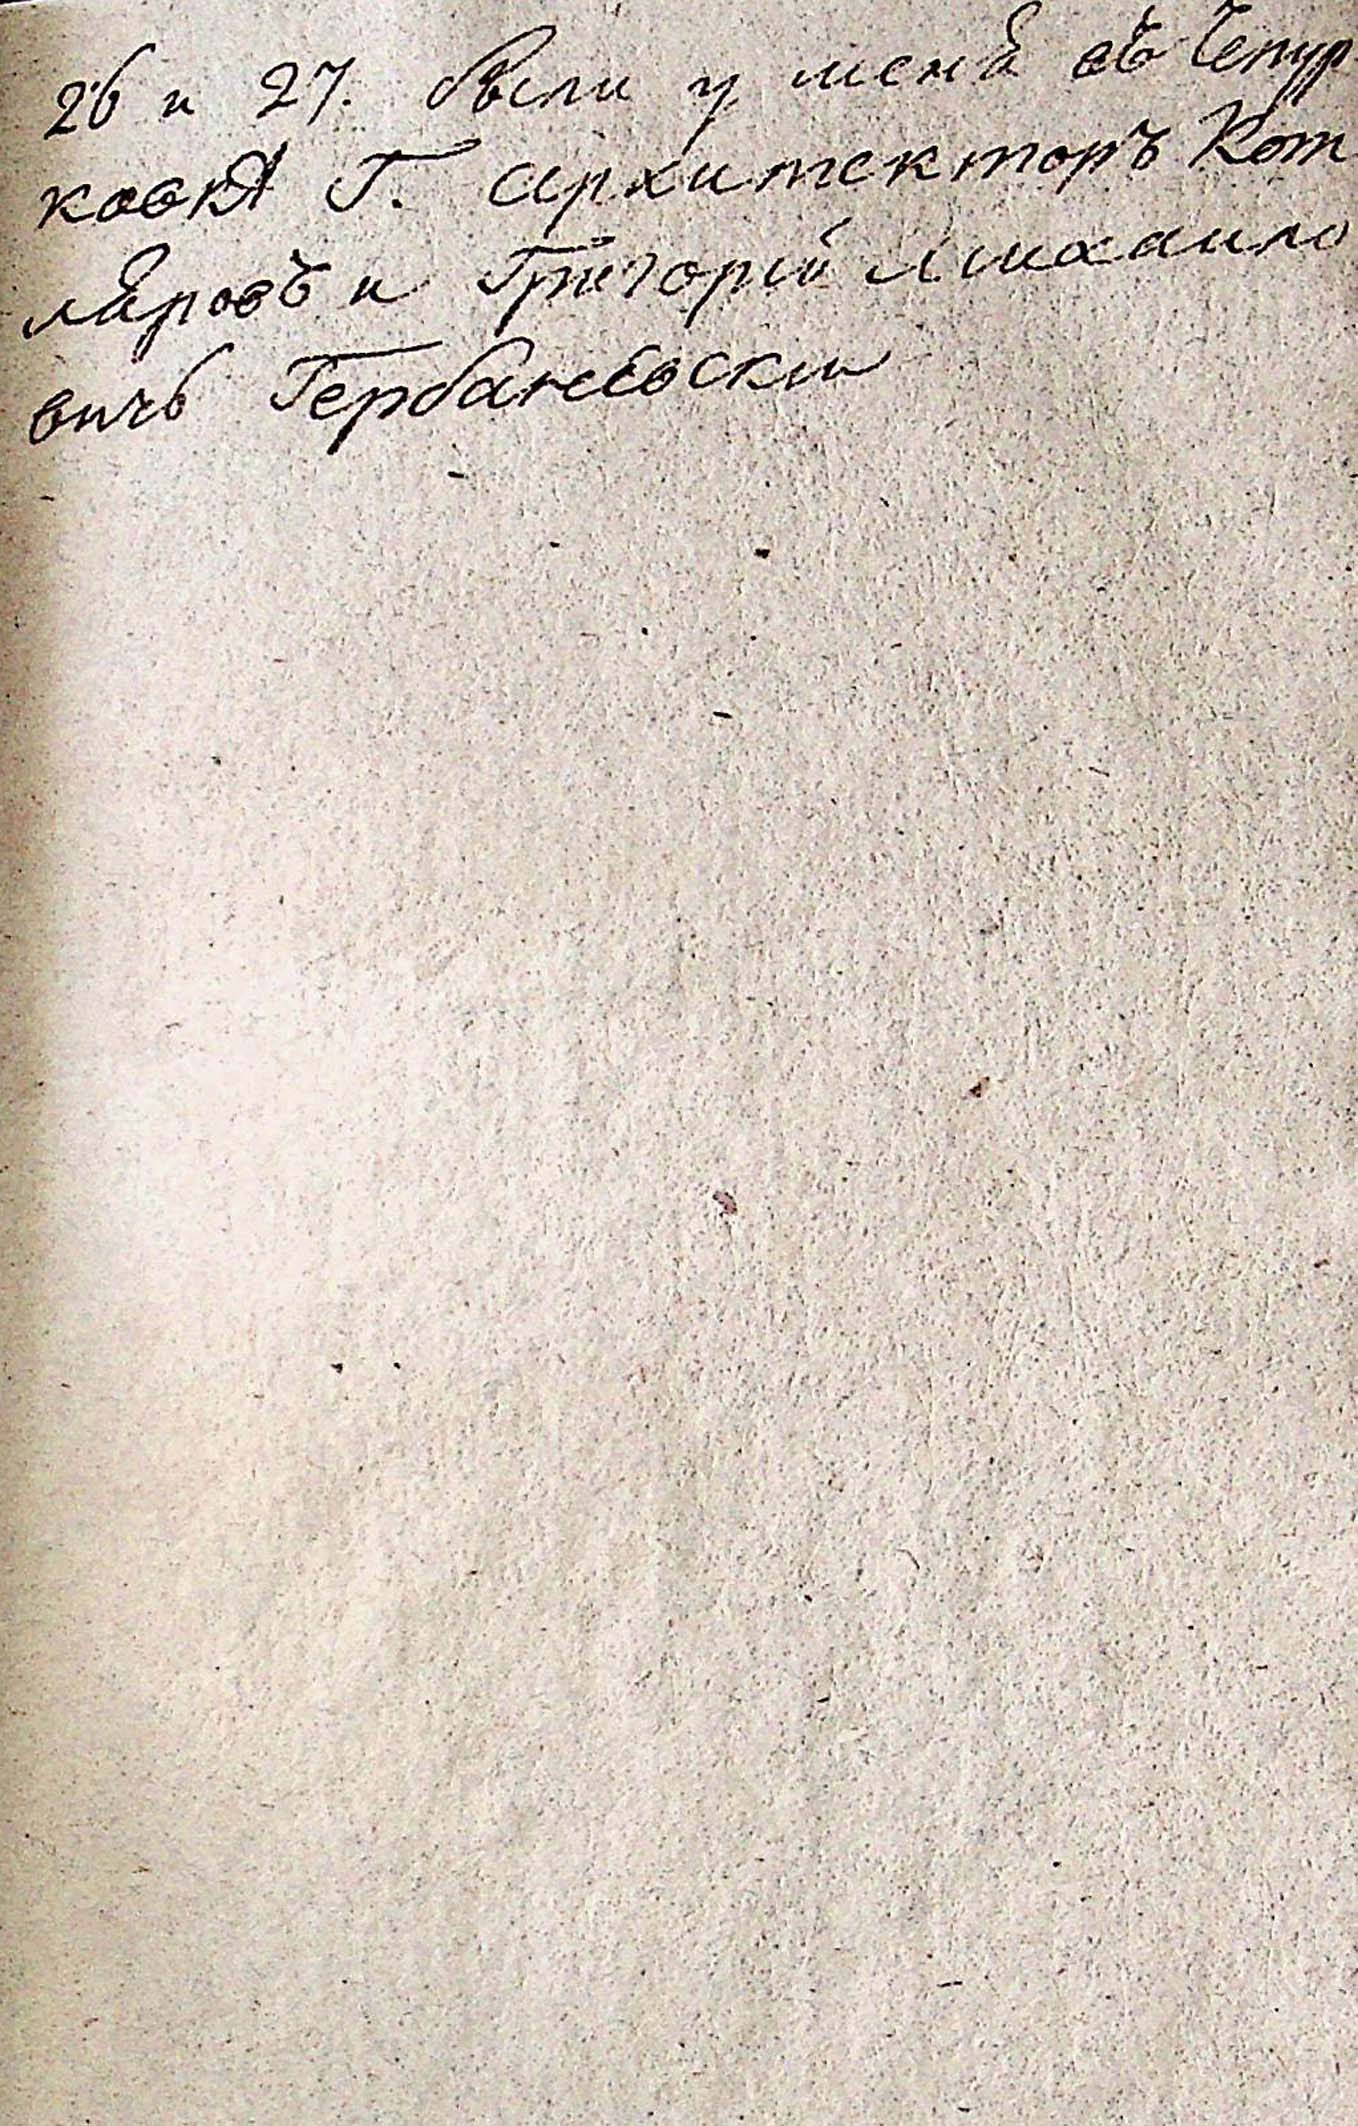 26 и 27. были у меня въ Чепур
ковкѣ Г. Архитекторъ Кот
ляровъ и Григорій Михаило
вичь Гербаневски